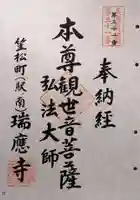 奉納経
本尊観世音菩薩
弘法大師
笠松町(駅南)瑞應寺